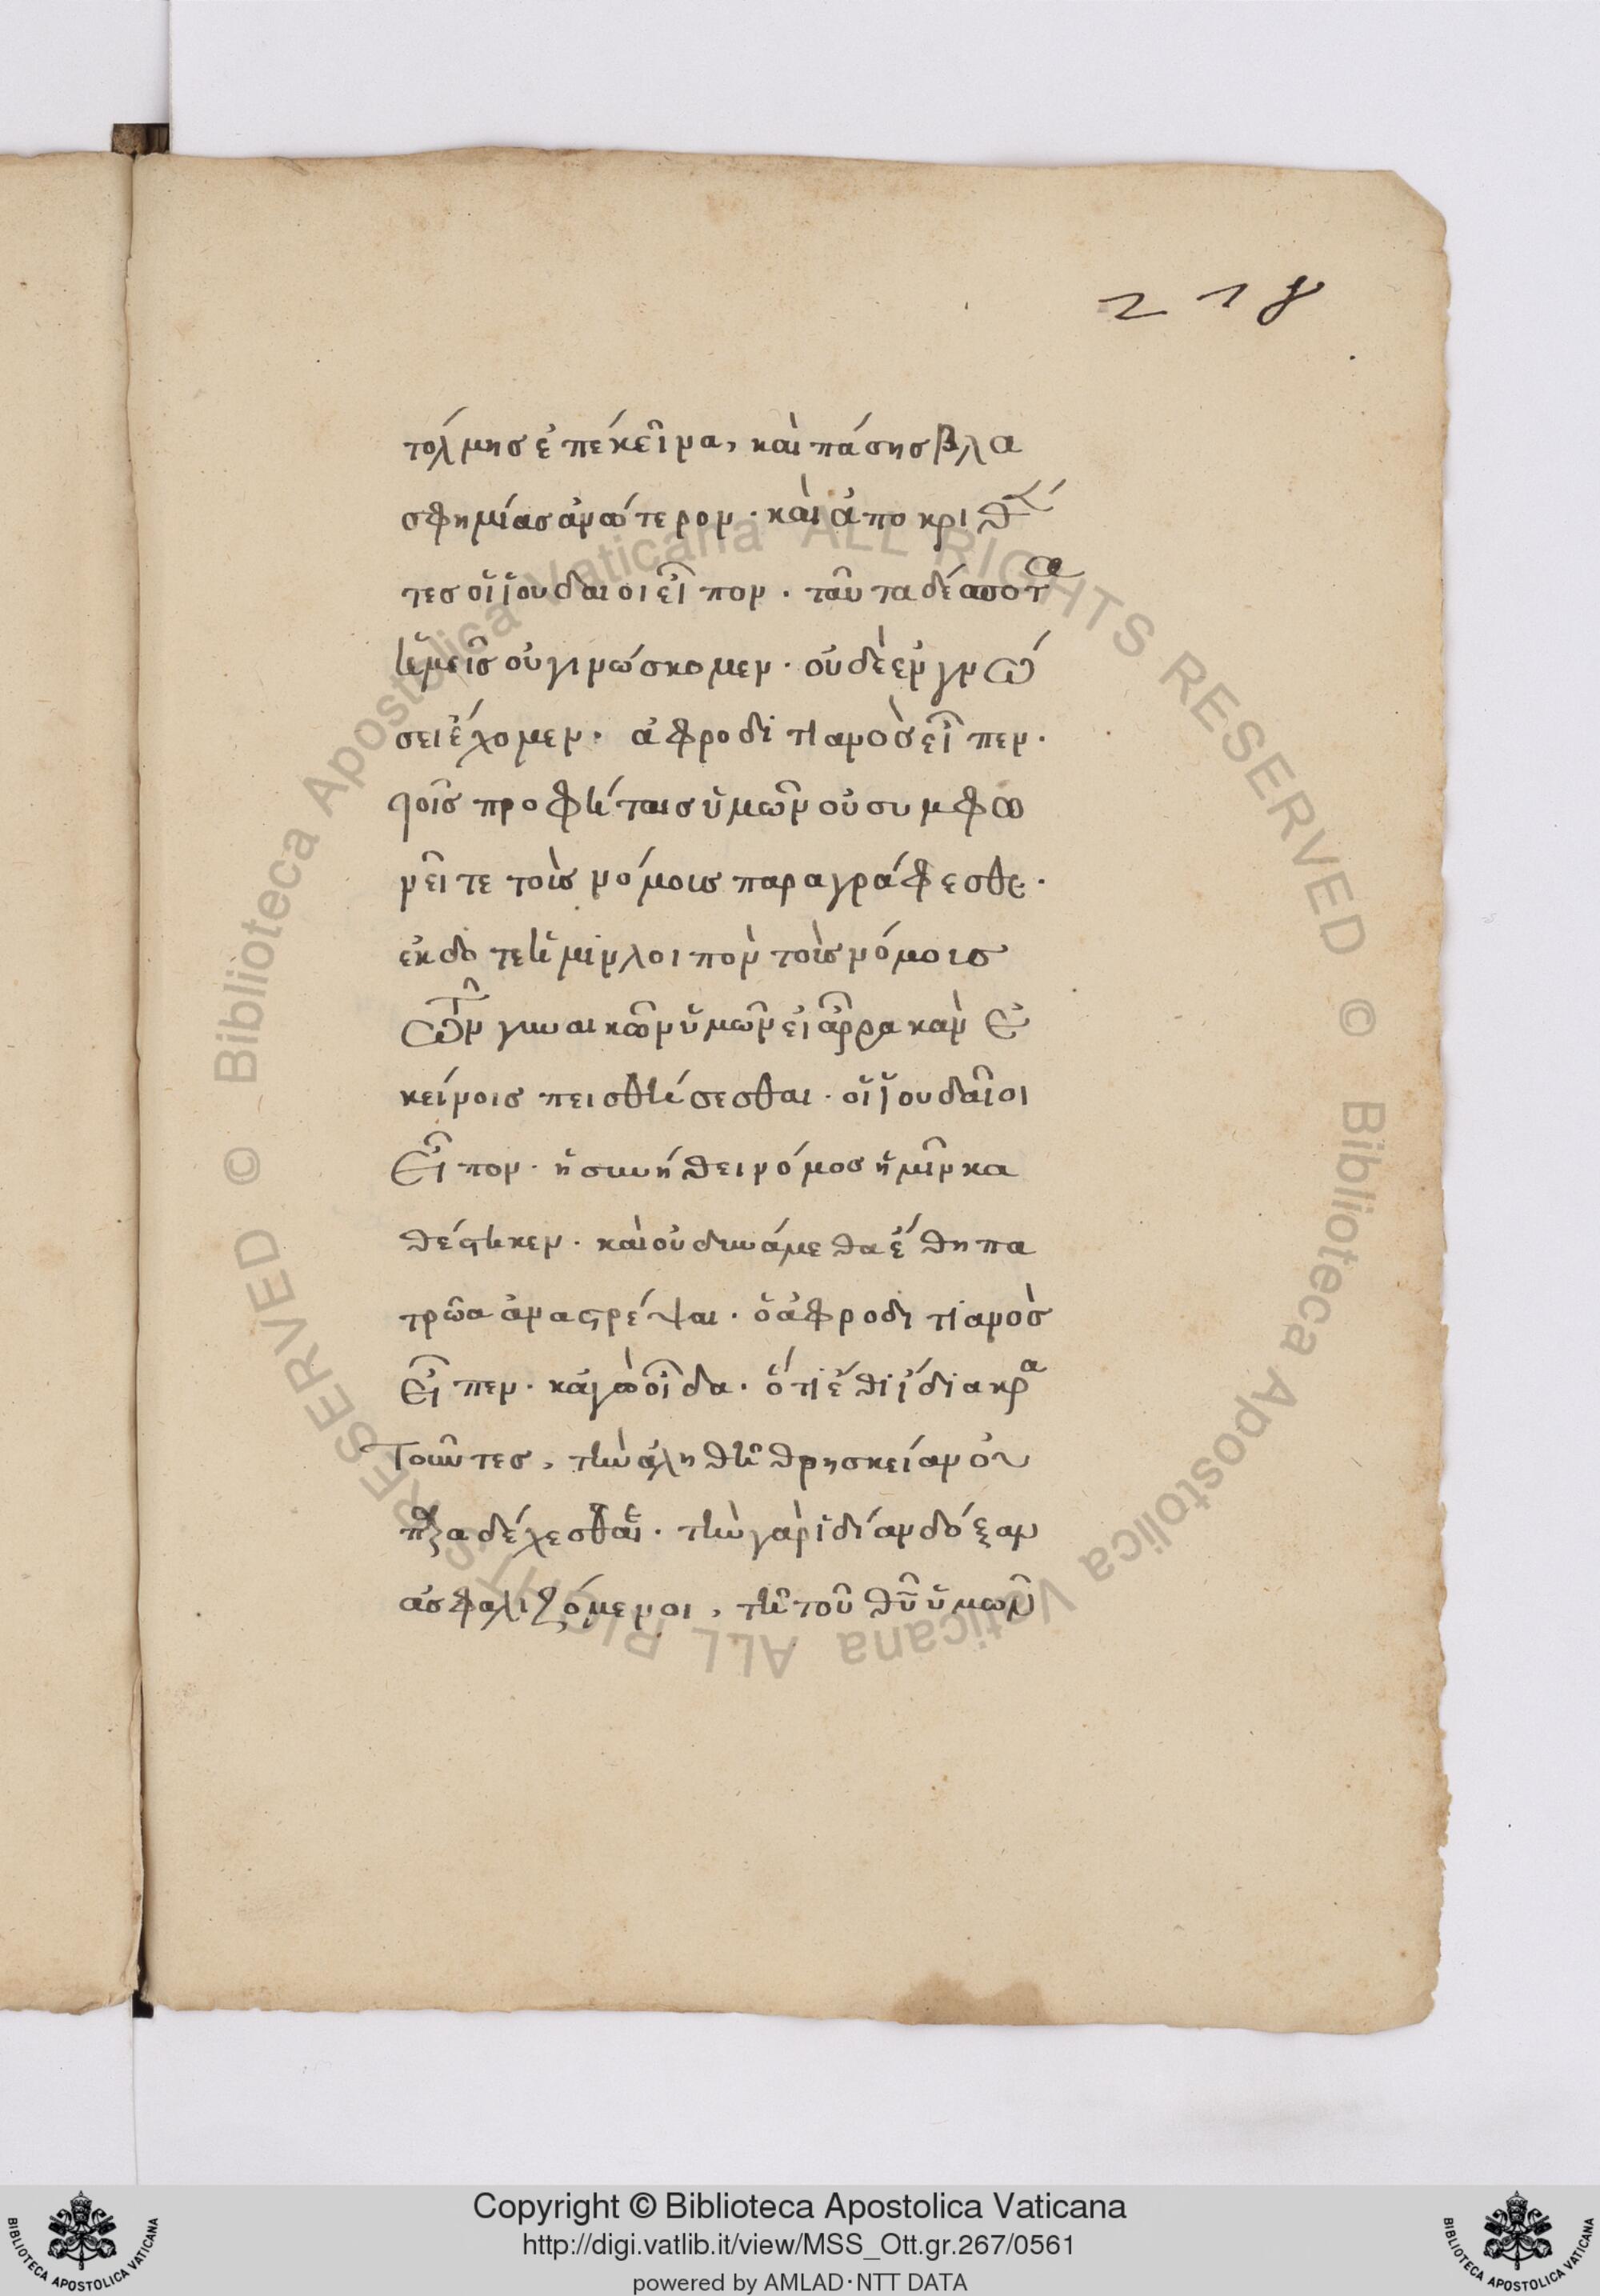 218
τόλμησ ἐπέκεινα, καὶ πάσησ βλα
σφημίασ ἀνώτερον · καὶ ἀποκριθέν
τεσ οἱ ἰουδαιοι εἶπον · ταῦτα δέσποτα
ἡμεῖσ οὐ γινώσκομεν · οὐδὲ ἐν γνώ
σει ἔχομεν · ἀφροδιτιανὸσ εἶπεν ·
τοῖσ προφήταισ ὑμῶν οὐ συμφω
νεῖτε τοῖσ νόμοισ παραγράφεσθε ·
ἐκδότε ἡμῖν λοιπὸν τοῖσ νόμοισ
τῶν γυναικῶν ὑμῶν εἰ ἆρρα κἀν ἐ
κείνοισ πεισθήσεσθαι · οἱ ἰουδαῖοι
εἶπον · ἡ συνήθει νόμοσ ἡμῖν κα
θέστηκεν · καὶ οὐ δυνάμεθα ἔθη πα
τρῶα ἀναστρέψαι · ὁ ἀφροδητιανὸσ
εἶπεν · κἀγὼ οἶδα · ὅτι ἔθι ἴδια κρα
τοῦντεσ, τὴν ἀληθῆ θρησκείαν οὐ
παραδέχεσθαι · τὴν γὰρ ἰδίαν δόξαν
ἀσφαλιζόμενοι, τῆ τοῦ θυ ὑμῶν
Copyright © Biblioteca Apostolica Vaticana
http://digi.vatlib.it/view/MSS_Ott.gr.267/0561
powered by AMLAD·NTT DATA
BIBLIOTECA APOSTOLICA VATICANA
BIBLIOTECA APOSTOLICA VATICANA
© Biblioteca Apostolica Vaticana ALL RIGHTS RESERVED
© Biblioteca Apostolica Vaticana ALL RIGHTS RESERVED